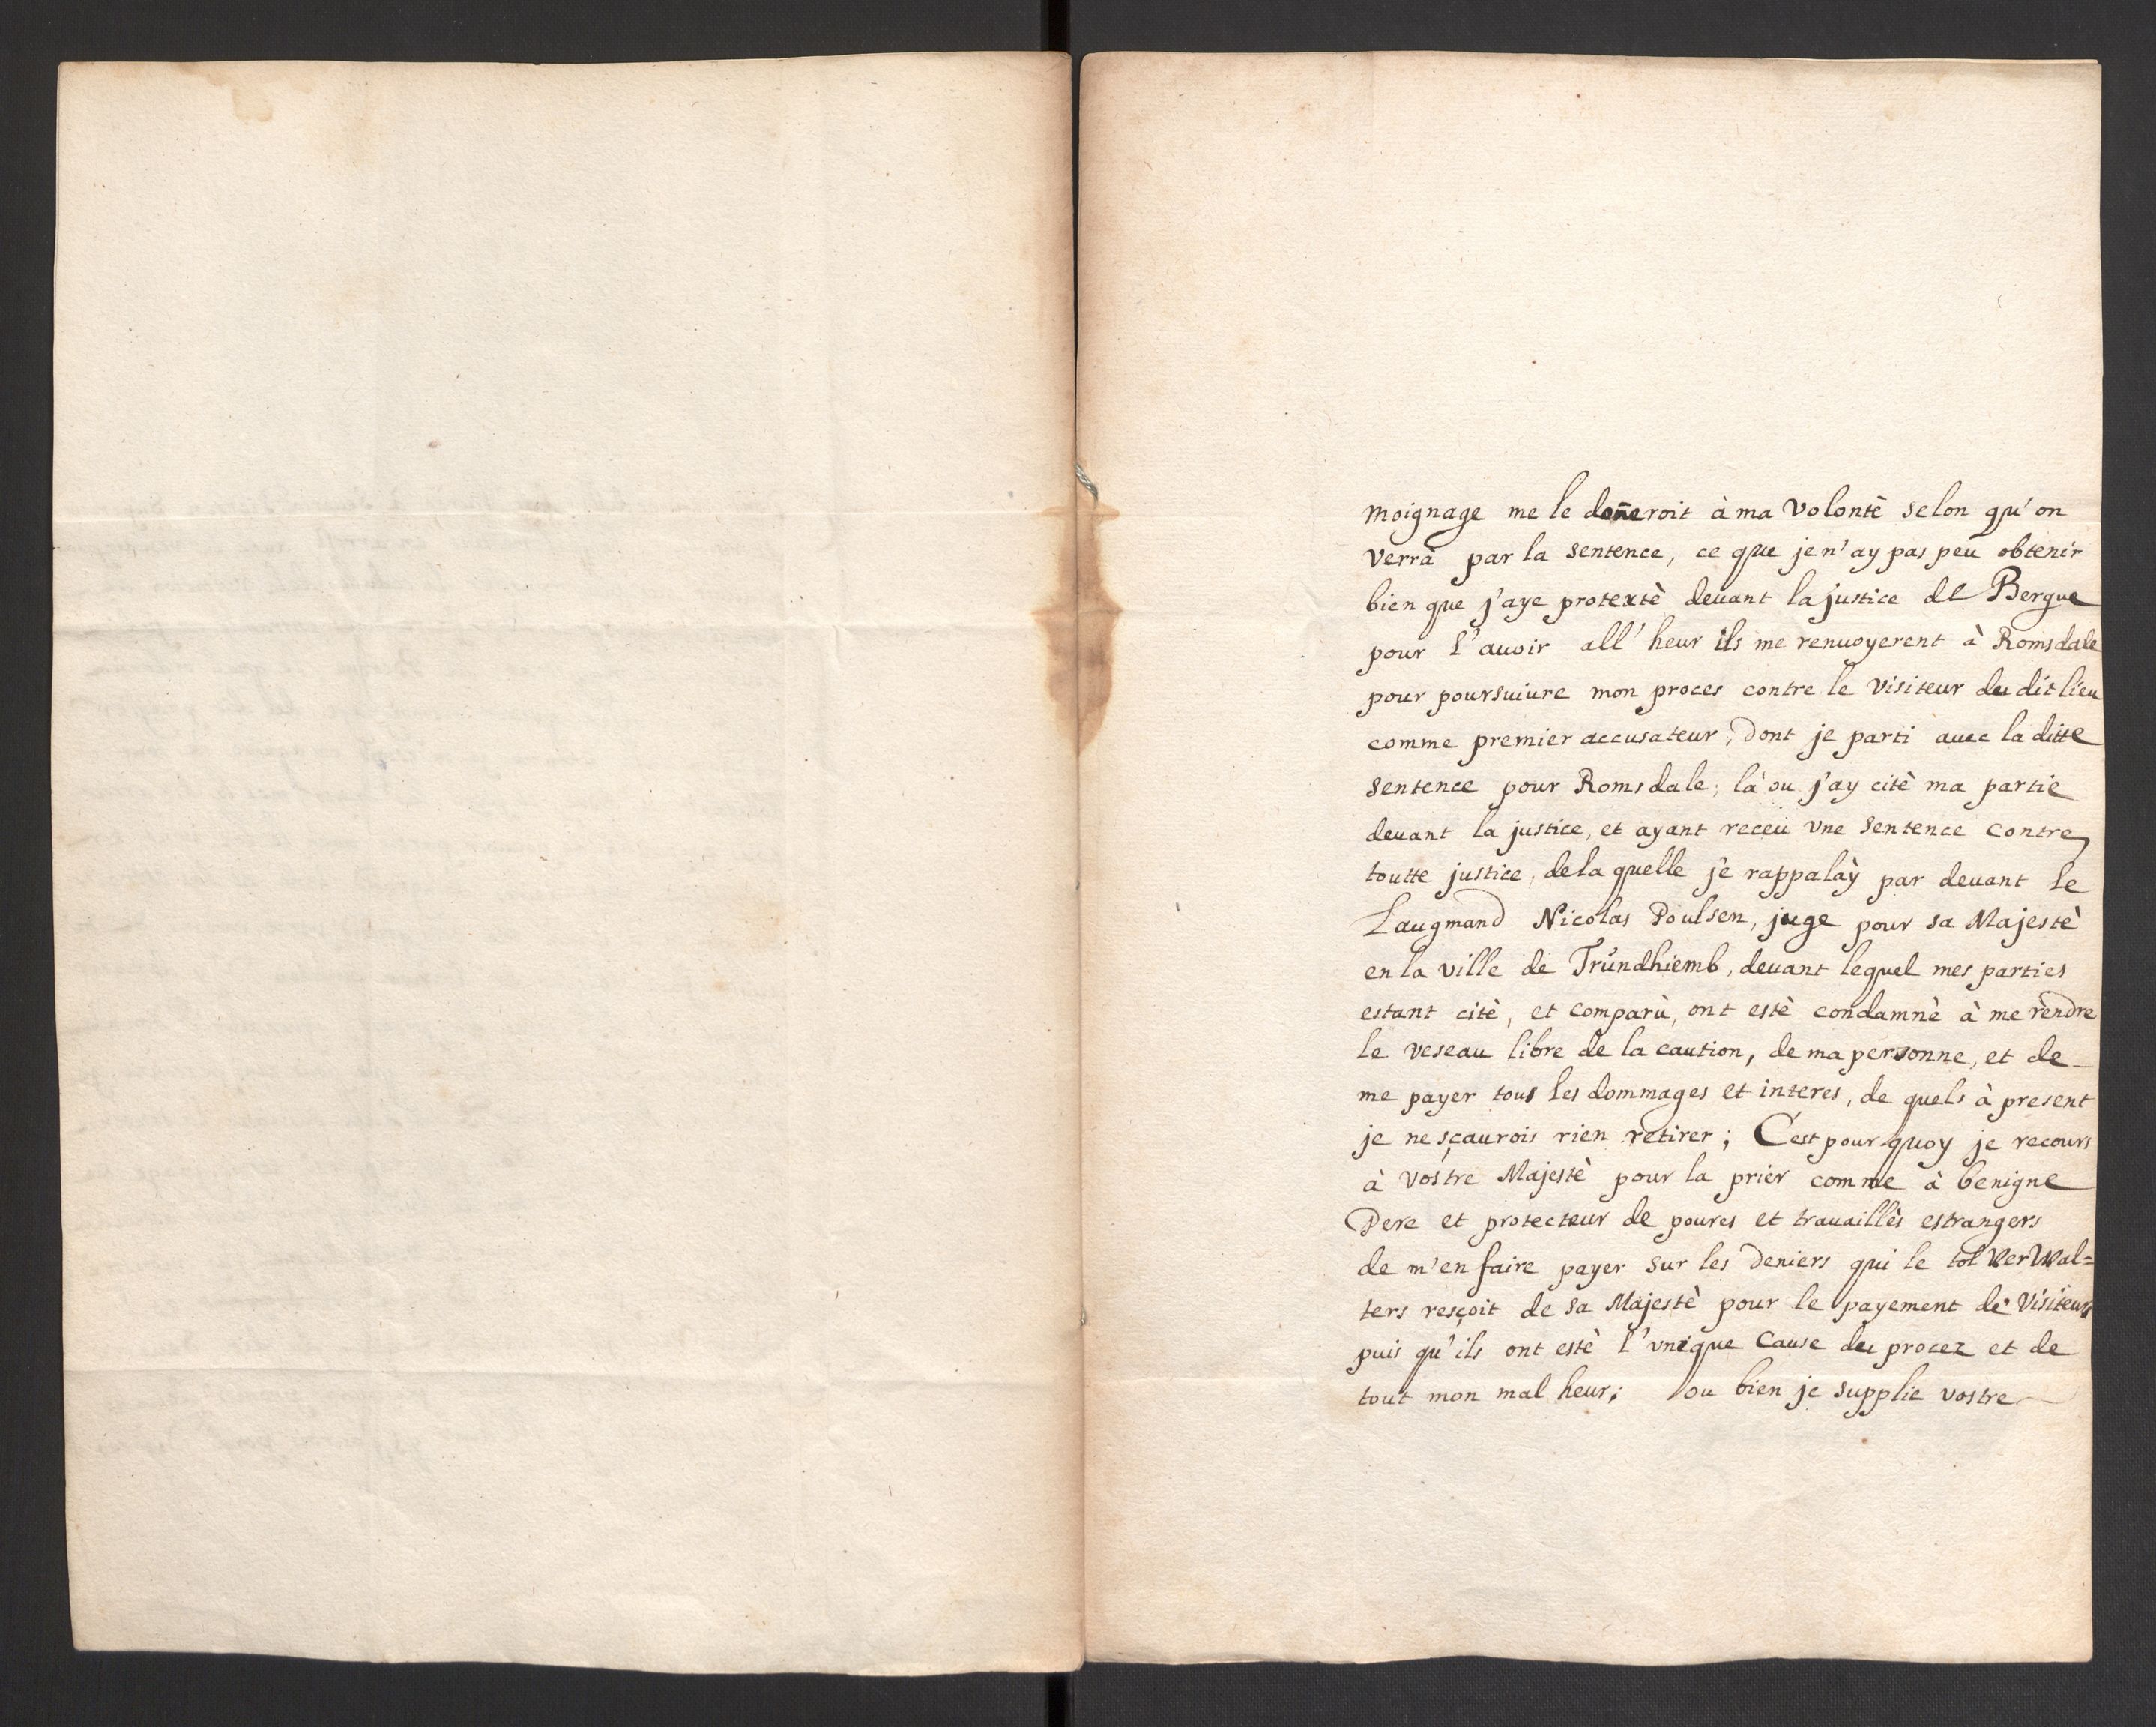 moignage me le doñeroit à ma volontè selon qu'on
verrà par la sentence, ce que je n'ay pas peu obtenir
bien que j'aye protextè deuant la justice de Bergue
pour l'auoir all' heur ils me renuoyerent à Romsdale
pour poursuiure mon proces contre le visiteur du dit lieu
comme premier accusateur, dont je parti auec la ditte
sentence pour Romsdale, là ou j'ay citè ma partie
deuant la justice, et ayant receu vne sentence contre
toutte justice, de la quelle je rappalày par deuant le
Laugmand Nicolas Poulsen, juge pour sa Majestè
en la ville de Trundhiemb, deuant lequel mes parties
estant citè, et comparù, ont estè condamnè à me rendre
le veseau libre de la caution, de ma personne, et de
me payer tous les dommages et interes, de quels à present
je ne sçaurois rien retirer; C'est pour quoy je recours
à vostre Majestè pour la prier comme à benigne
Pere et protecteur de poures et trauaillès estrangers
de m'en faire payer sur les deniers qui le tol verwal=
ters resçoit de sa Majestè pour le payement de visiteurs
puis qu'ils ont estè l'vnique cause du procez et de
tout mon mal heur; ou bien je supplie vostre